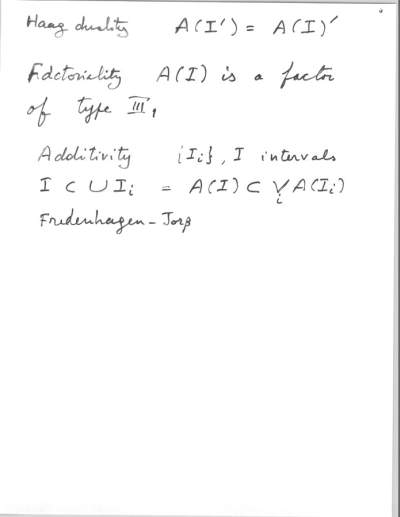 Haag duality A(I') = A(I)'
Factoriality A(I) is a factor
of type III₁
Additivity {Ii}, I intervals
I ⊂ ∪ Ii = A(I) ⊂ ∨i A(Ii)
Fredenhagen - Jorß